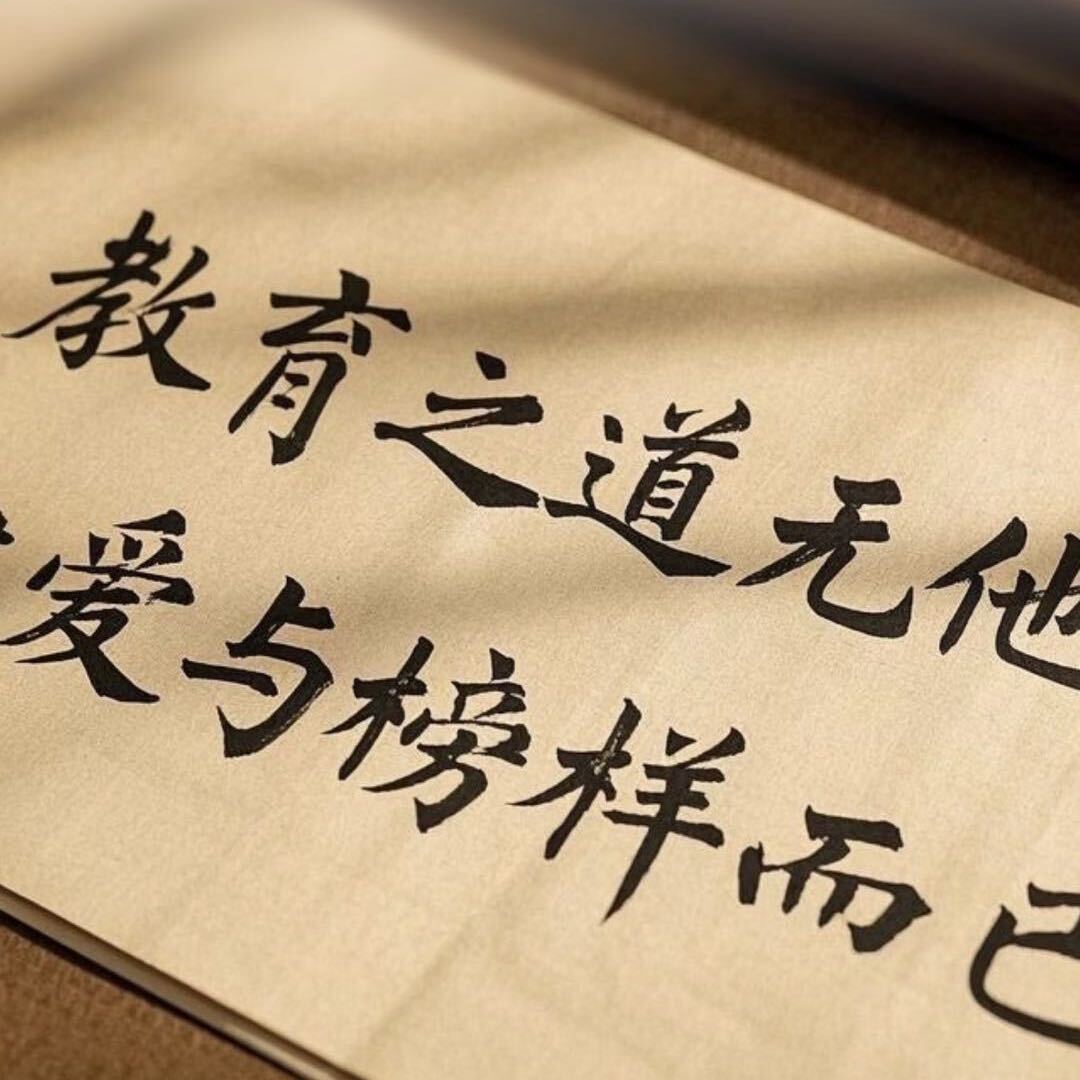 教育之道无他
爱与榜样而已